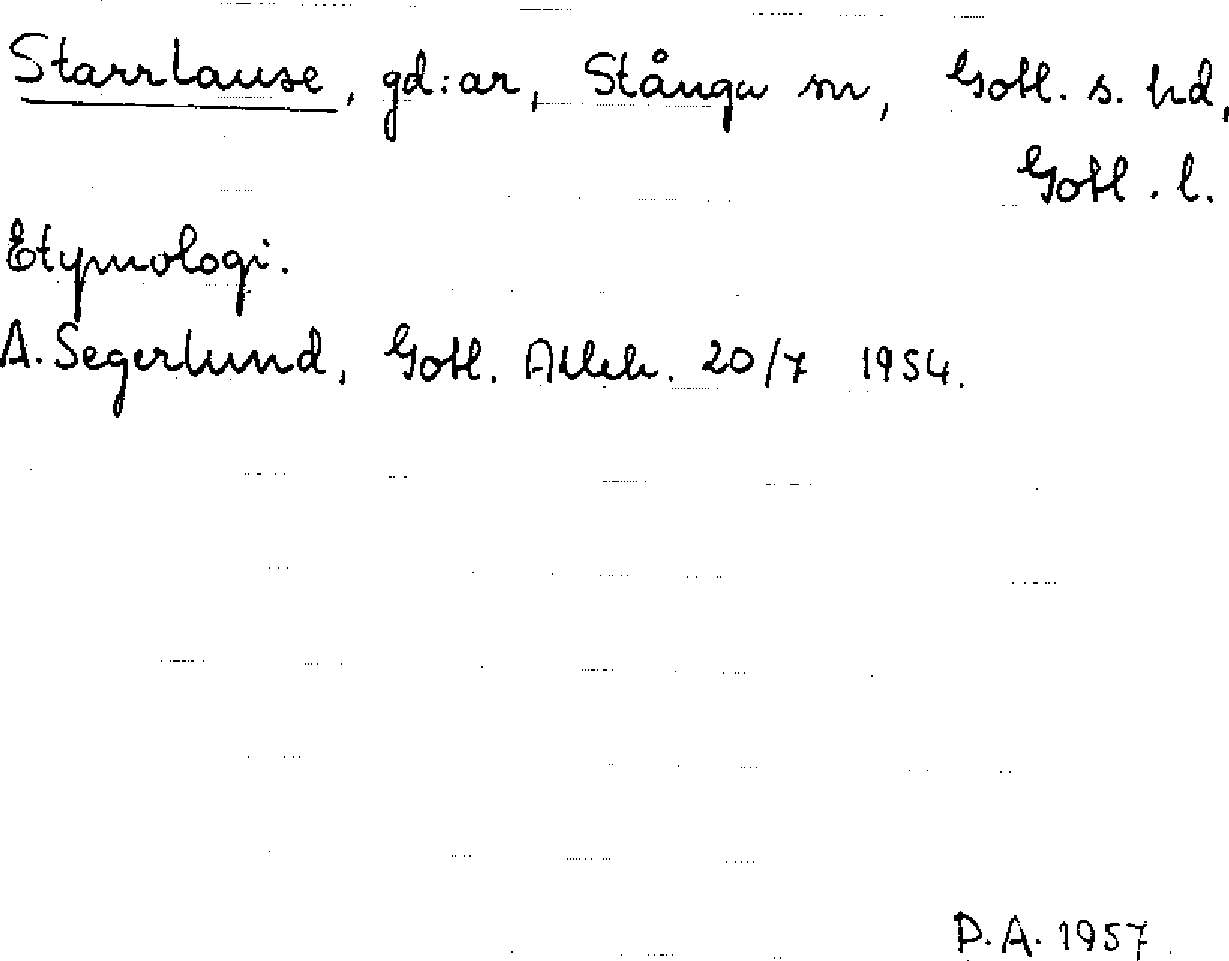 Starrlause, gd:ar, Stånga sn, Gotl. s. hd,
Gotl. l.
Etymologi.
A. Segerlund, Gotl. Alleh. 20/7 1954.
P.A. 1957